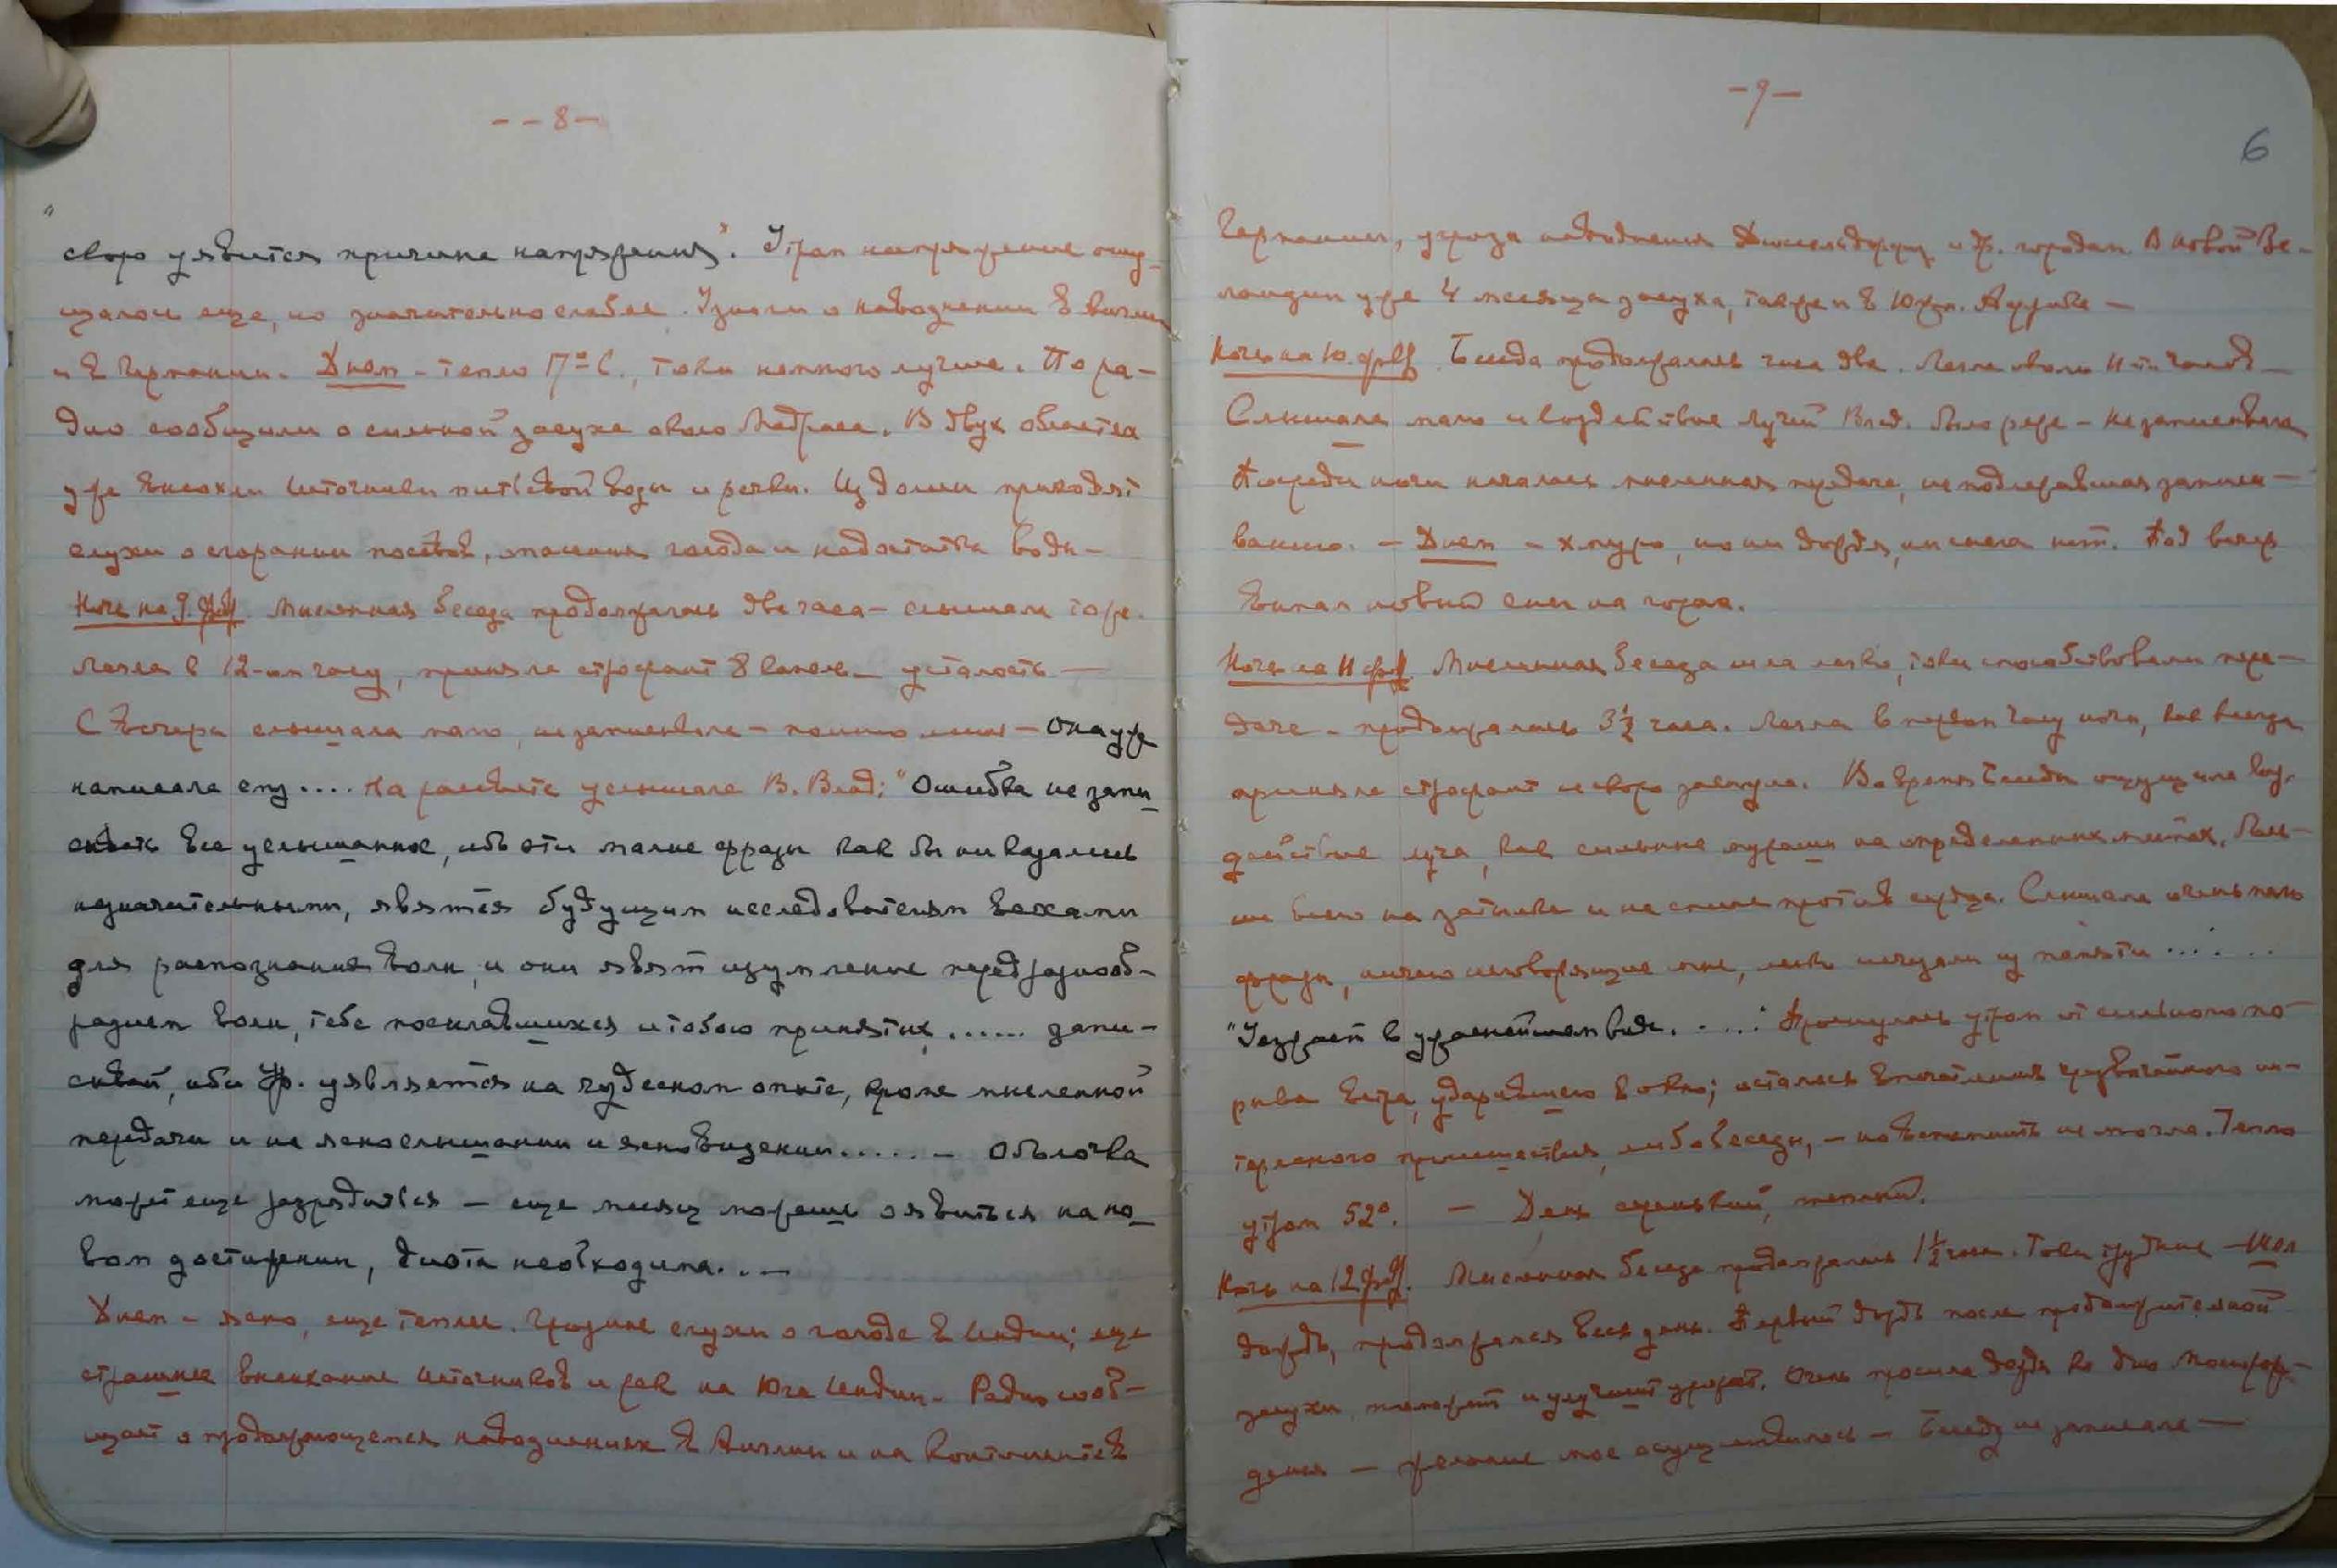 - - 8 -
"скоро уявится причина напряжения". Утром напряжение ощу-
щалось еще, но значительно слабее. Узнали о наводнении в Англии
и в Германии. Днем - тепло 17° С., токи немного лучше. По ра-
дио сообщили о сильной засухе около Мадраса. В двух областях
уже высохли источники питьевой воды и речки. Из долин приходят
слухи о сгорании посевов, опасения голода и недостатка воды -
Ночь на 9. фев. Мысленная беседа продолжалась два часа - слышала тоже.
Легла в 12-ом часу, приняла строфант 8 капель - усталость -
С вечера слышала мало, не записывала - помимо меня - Она уже
написала ему.... На рассвете услышала В. Влад: "Ошибка не запи-
сывать все услышанное, ибо эти малые фразы как бы ни казались
незначительными, явятся будущим исследователям вехами
для распознания воли, и они явят изумление перед разнооб-
разием воли, тебе посылавшихся и тобою принятых ...... запи-
сывай, ибо Ур. уявляется на чудесном опыте, кроме мысленной
передачи и на яснослышании и ясновидении..... - Оболочка
может еще разрядиться - еще месяц можешь оявиться на но-
вом достижении, диэта необходима.. -
Днем - ясно, еще теплее. Грозные слухи о голоде в Индии; еще
страшнее высыхание источников и рек на Юге Индии - Радио сооб-
щает о продолжающемся наводнениях в Англии и на континенте в
- 9 -
6
Германии, угроза наводнения Дюссельдорфу и др. городам. В Новой Зе-
ландии уже 4 месяца засуха, также и в Южн. Африке -
Ночь на 10. фев. Беседа продолжалась часа два. Легла около 11-ти часов -
Слышала мало и воздействие лучей Влад. было реже - не записывала
Посреди ночи началась мысленная передача, не подлежавшая записы-
ванию. - Днем - хмуро, но ни дождя, ни снега нет. Под вечер
выпал новый снег на горах.
Ночь на 11 фев. Мысленная беседа шла легко, токи способствовали пере-
даче - продолжалась 3½ часа. Легла в первом часу ночи, как всегда
приняла строфант и скоро заснула. Во время беседы ощущала воз-
действие луча, как сильные мурашки на определенных местах, боль-
ше всего на затылке и на спине против сердца. Слышала очень мало
фразы, ничего не говорящие мне, исчезали из памяти .....
"Уезжает в ужаснейшем виде. ....." Проснулась утром от сильного по-
рыва ветра, ударившего в окно; осталось впечатление чрезвычайного ин-
тересного происшествия, либо беседы, - но вспомнить не могла. Тепло
утром 52°. - День серенький, теплый.
Ночь на 12. фев. Мысленная беседа продолжалась 1½ часа. Токи трудные - Шел
дождь, продолжался весь день. Первый дождь после продолжительной
засухи, поможет и улучшит урожай. Очень просила дождя ко дню
дения - желание мое осуществилось - Беседу не записала -